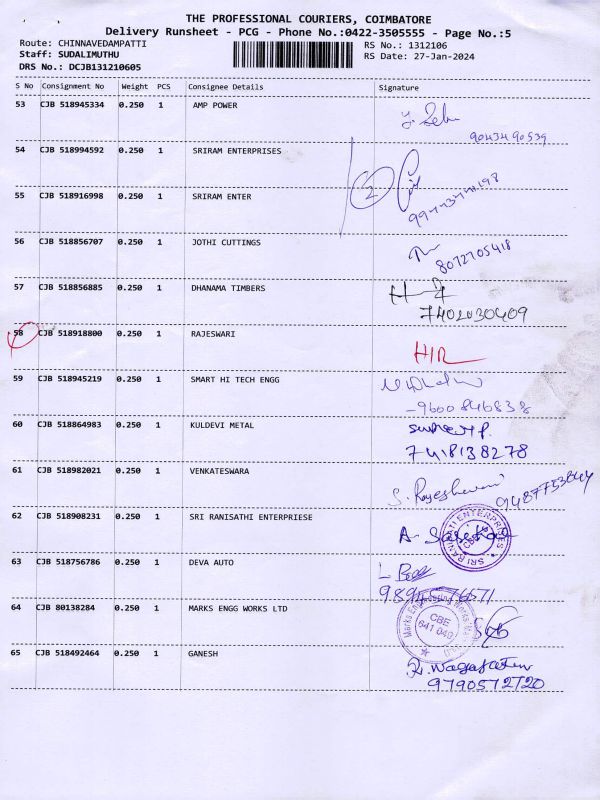 THE PROFESSIONAL COURIERS, COIMBATORE
Delivery Runsheet - PCG - Phone No.:0422-3505555 - Page No.:5
Route: CHINNAVEDAMPATTI RS No.: 1312106
Staff: SUDALIMUTHU RS Date: 27-Jan-2024
DRS No.: DCJB131210605
S No Consignment No Weight PCS Consignee Details Signature
53 CJB 518945334 0.250 1 AMP POWER
9043490539
54 CJB 518994592 0.250 1 SRIRAM ENTERPRISES
2
55 CJB 518916998 0.250 1 SRIRAM ENTER
56 CJB 518856707 0.250 1 JOTHI CUTTINGS
8072705418
57 CJB 518856885 0.250 1 DHANAMA TIMBERS
7402030409
58 CJB 518918800 0.250 1 RAJESWARI
59 CJB 518945219 0.250 1 SMART HI TECH ENGG
9600846838
60 CJB 518864983 0.250 1 KULDEVI METAL
7418138278
61 CJB 518982021 0.250 1 VENKATESWARA
S. Rajeshwari 9487753844
62 CJB 518908231 0.250 1 SRI RANISATHI ENTERPRIESE
63 CJB 518756786 0.250 1 DEVA AUTO
64 CJB 80138284 0.250 1 MARKS ENGG WORKS LTD
CBE
641 049
65 CJB 518492464 0.250 1 GANESH
9790572720